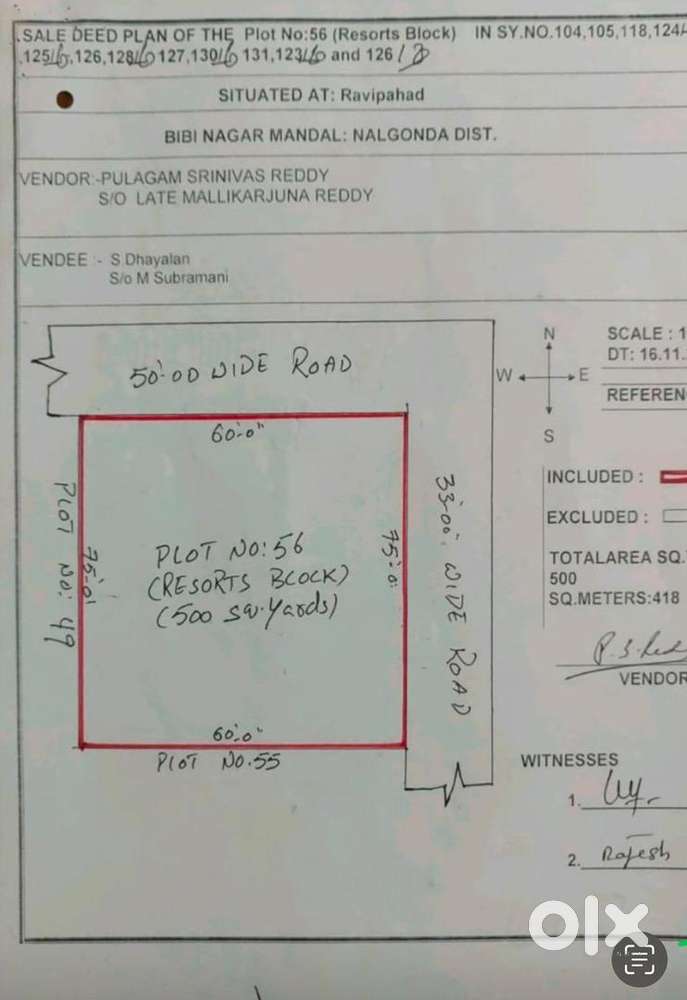 SALE DEED PLAN OF THE Plot No:56 (Resorts Block) IN SY.NO.104,105,118,124/
,125 ,126,128 127,130 131,123 and 126
SITUATED AT: Ravipahad
BIBI NAGAR MANDAL: NALGONDA DIST.
VENDOR:-PULAGAM SRINIVAS REDDY
S/O LATE MALLIKARJUNA REDDY
VENDEE :- S Dhayalan
S/o M Subramani
50'-00 WIDE ROAD
N
W
E
S
SCALE : 1
DT: 16.11.
REFEREN
60'-0"
PLOT NO: 49
75'-0"
PLOT NO: 56
(RESORTS BLOCK)
(500 sq.yards)
75'-0"
33'-00" WIDE ROAD
60'-0"
PLOT NO.55
INCLUDED :
EXCLUDED :
TOTALAREA SQ.
500
SQ.METERS:418
P.S.Red
VENDOR
WITNESSES
1.
2. Rajesh
olx